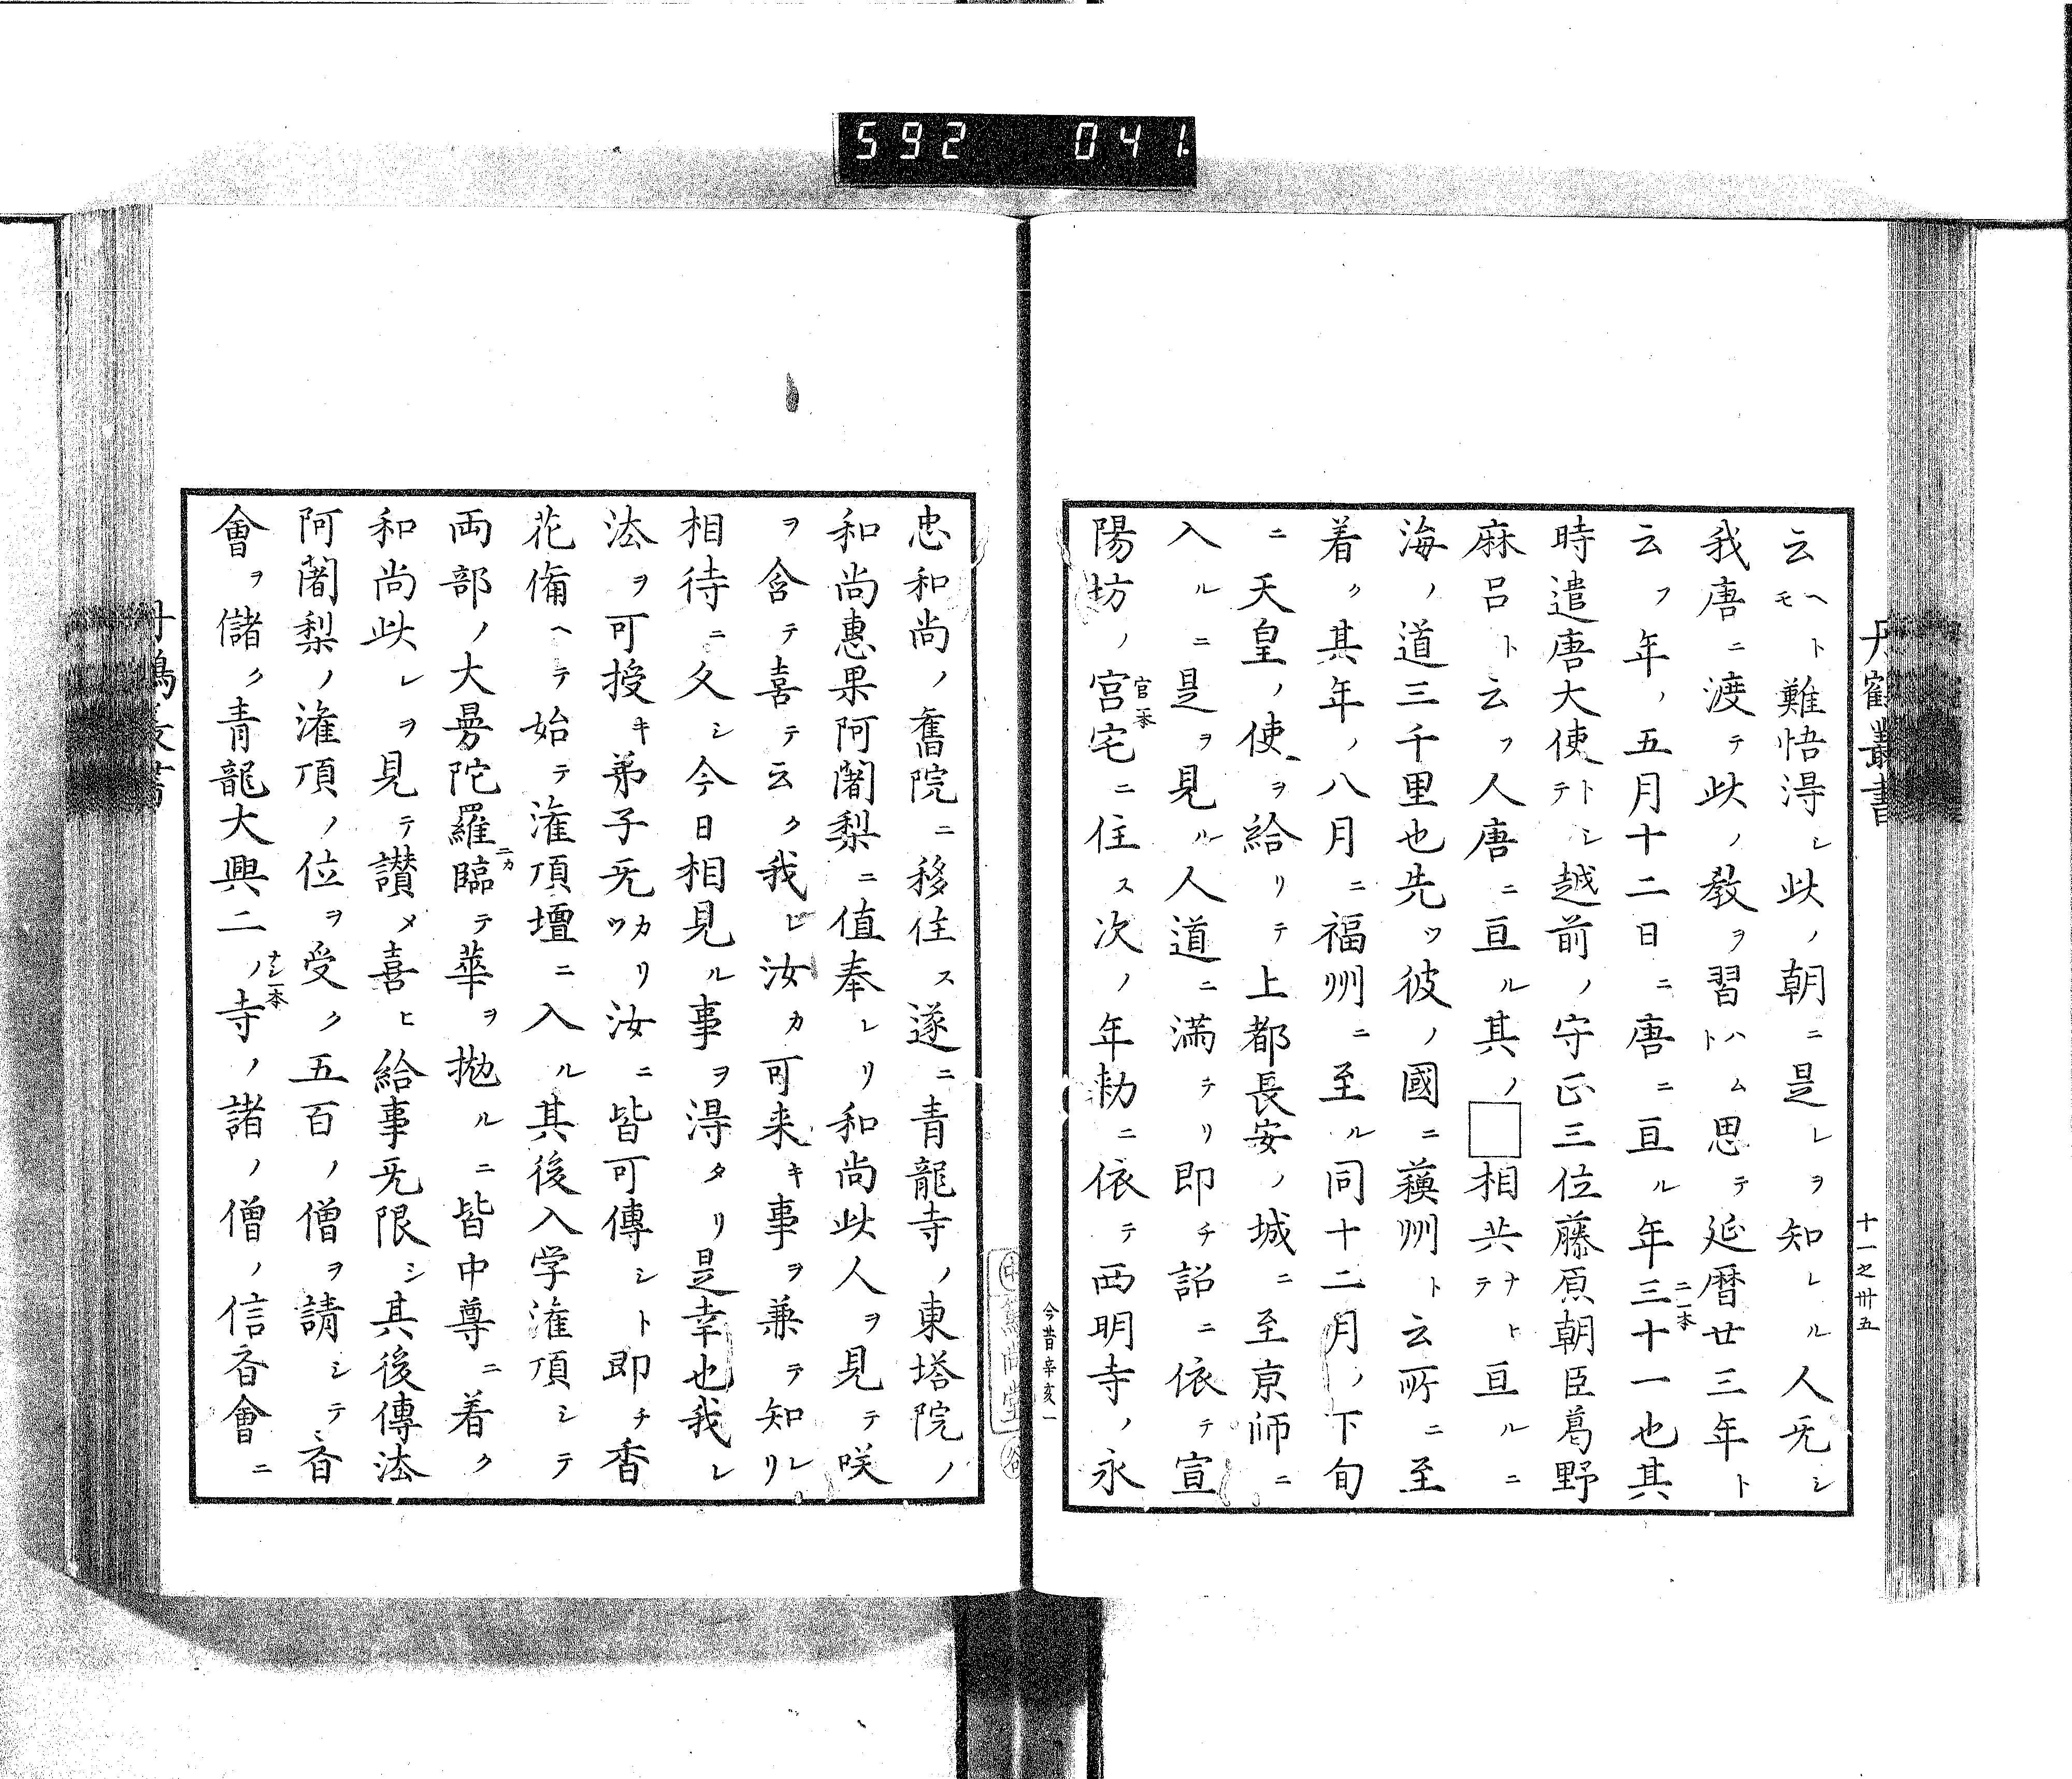 592 041
丹鶴叢書
十一之卅五
云ヘトモ難悟得シ此ノ朝ニ是レヲ知レル人无シ
我唐ニ渡テ此ノ教ヲ習ハムト思テ延暦廿三年ト
云フ年ノ五月十二日ニ唐ニ亘ル年三十一也其
二一本
時遣唐大使トシテ越前ノ守正三位藤原朝臣葛野
麻呂ト云フ人唐ニ亘ル其ノ□相共ナヒテ亘ルニ
海ノ道三千里也先ツ彼ノ國ニ蘓州ト云所ニ至
着ク其年ノ八月ニ福州ニ至ル同十二月ノ下旬
ニ天皇ノ使ヲ給リテ上都長安ノ城ニ至京師ニ
入ルニ是ヲ見ル人道ニ滿テリ即チ詔ニ依テ宣
陽坊ノ宮宅ニ住ス次ノ年勅ニ依テ西明寺ノ永
官一本
今昔辛亥一
忠和尚ノ舊院ニ移住ス遂ニ青龍寺ノ東塔院ノ
和尚惠果阿闍梨ニ値奉レリ和尚此人ヲ見テ咲
ヲ含テ喜テ云ク我レ汝カ可来キ事ヲ兼テ知レリ
相待ニ久シ今日相見ル事ヲ得タリ是幸也我レ
法ヲ可授キ弟子无カリツ汝ニ皆可傳シト即チ香
花備ヘテ始テ潅頂壇ニ入ル其後入学潅頂シテ
両部ノ大曼陀羅臨テ華ヲ抛ルニ皆中尊ニ着ク
ニカ
和尚此レヲ見テ讃メ喜ヒ給事无限シ其後傳法
阿闍梨ノ潅頂ノ位ヲ受ク五百ノ僧ヲ請シテ斎
會ヲ儲ク青龍大興二ノ寺ノ諸ノ僧ノ信斎會ニ
ナシ一本